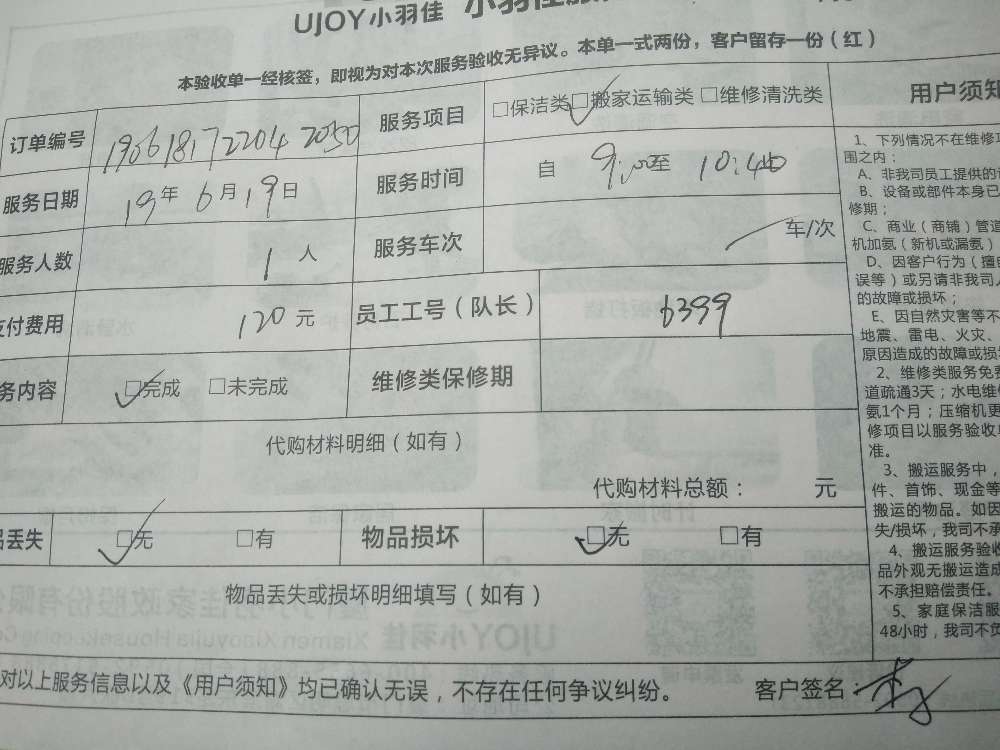 UJOY小羽佳
本验收单一经核签，即视为对本次服务验收无异议。本单一式两份，客户留存一份（红）
订单编号 1906181722042050 服务项目 □保洁类 □搬家运输类 □维修清洗类
服务日期 19年6月19日 服务时间 自 9:00至 10:40
服务人数 1人 服务车次 车/次
支付费用 120元 员工工号（队长） 6399
务内容 □完成 □未完成 维修类保修期
代购材料明细（如有）
代购材料总额： 元
丢失 □无 □有 物品损坏 □无 □有
物品丢失或损坏明细填写（如有）
对以上服务信息以及《用户须知》均已确认无误，不存在任何争议纠纷。 客户签名：
用户须知
1、下列情况不在维修
围之内：
A、非我司员工提供的
B、设备或部件本身已
修期；
C、商业（商铺）管道
机加氨（新机或漏氨）
D、因客户行为（擅
误等）或另请非我司
的故障或损坏；
E、因自然灾害等不
地震、雷电、火灾、
原因造成的故障或损
2、维修类服务免费
道疏通3天；水电维
氨1个月；压缩机更
修项目以服务验收
准。
3、搬运服务中，
件、首饰、现金等
搬运的物品。如因
失/损坏，我司不承
4、搬运服务验收
品外观无搬运造成
不承担赔偿责任。
5、家庭保洁服
48小时，我司不负